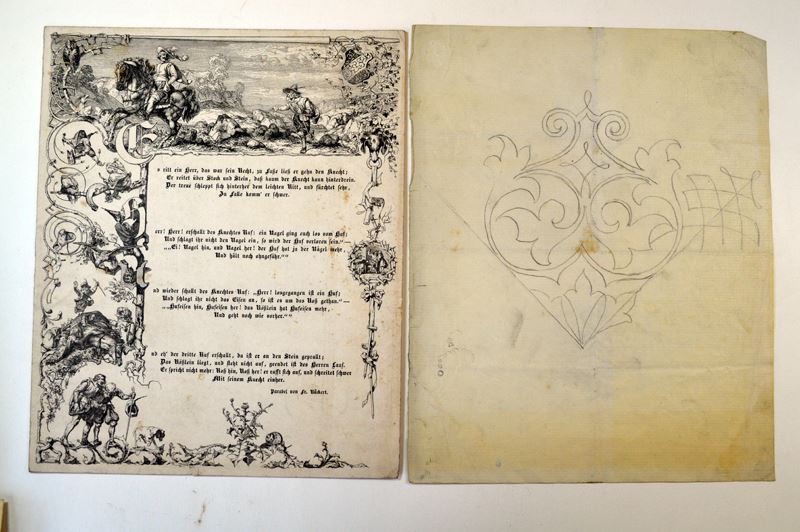 Es ritt ein Herr, das war sein Recht, zu Fuße ließ er gehn den Knecht;
Er reitet über Stock und Stein, daß kaum der Knecht kann hinterdrein.
Der treue schleppt sich hinterher dem leichten Ritt, und fürchtet sehr,
Zu Falle komm' er schwer.
err! Herr! erschallt des Knechtes Ruf: ein Nagel ging euch los vom Huf;
Und schlagt ihr nicht den Nagel ein, so wird der Huf verloren sein."—
„„Ei! Nagel hin, und Nagel her! der Huf hat ja der Nägel mehr,
Und hält noch ohngefähr.""
nd wieder schallt des Knechtes Ruf: „Herr! losgegangen ist ein Huf;
Und schlagt ihr nicht das Eisen an, so ist es um das Roß gethan."—
„„Hufeisen hin, Hufeisen her! das Rößlein hat Hufeisen mehr,
Und geht noch wie vorher.""
nd eh' der dritte Ruf erschallt, da ist er an den Stein geprallt;
Das Rößlein liegt, und steht nicht auf, geendet ist des Herren Lauf.
Er spricht nicht mehr: Roß hin, Roß her! er rafft sich auf, und schreitet schwer
Mit seinem Knecht einher.
Parabel von Fr. Rückert.